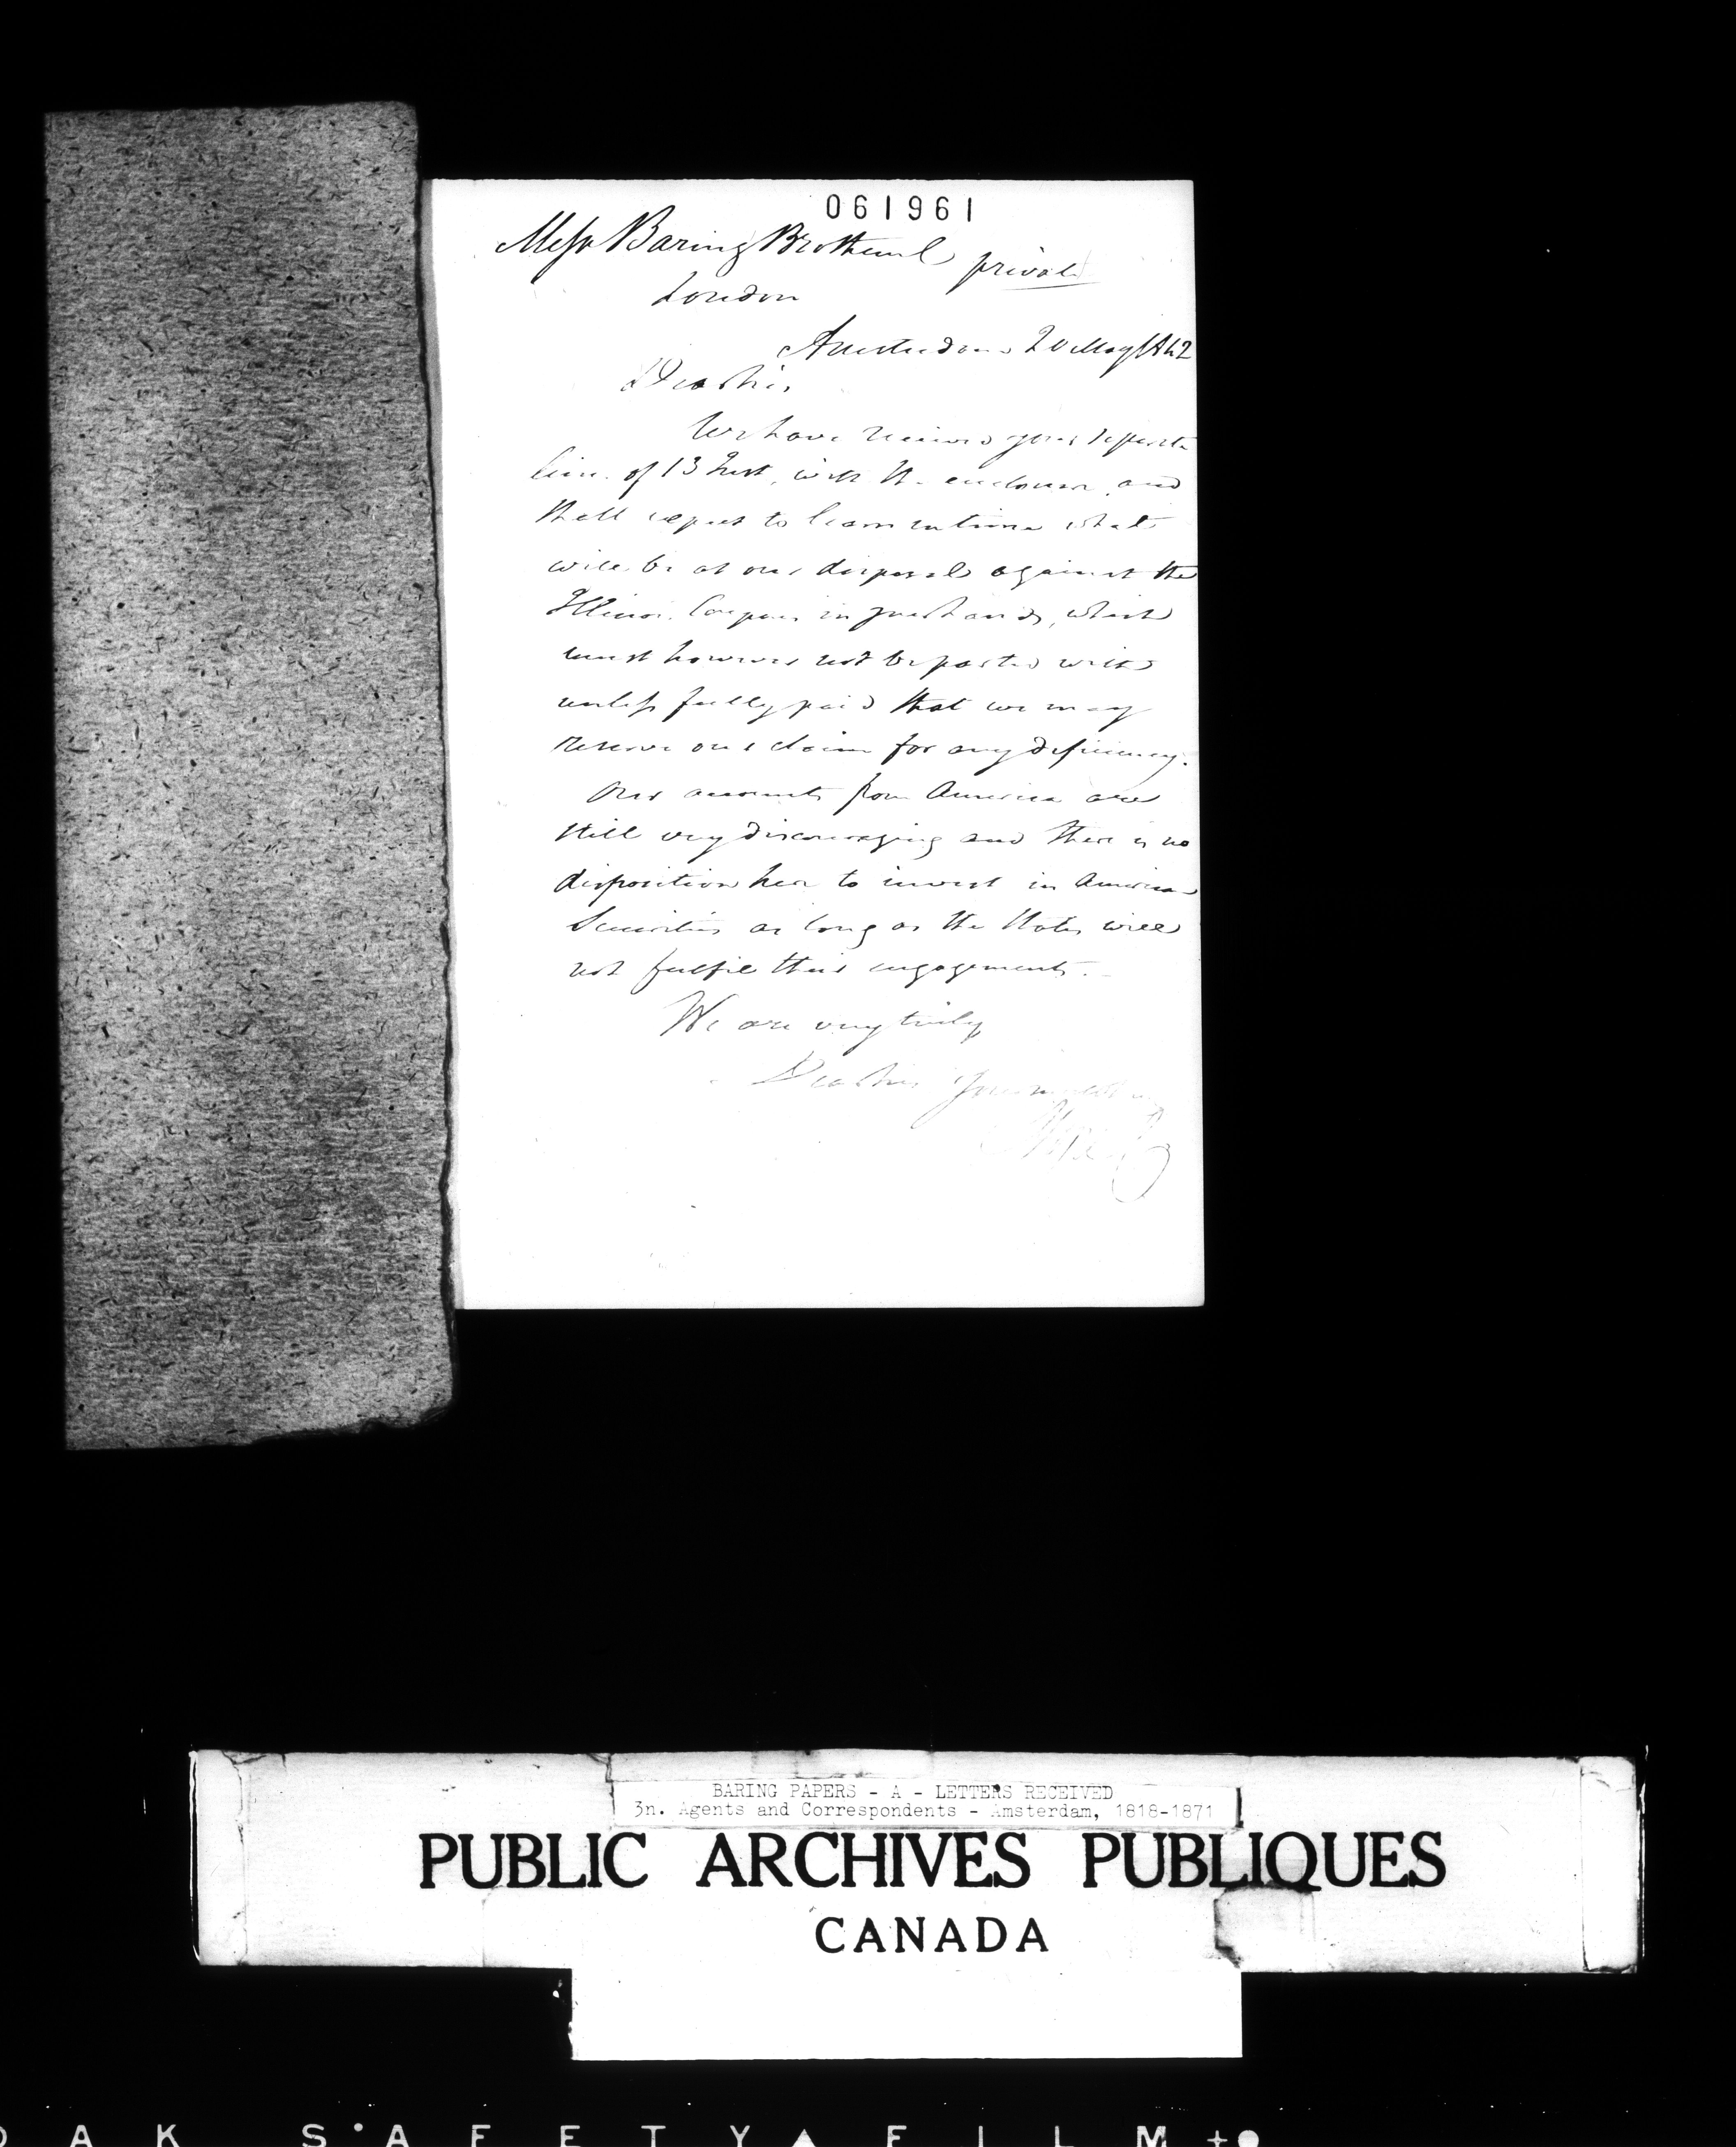 061961
Messrs Baring Brothers &
private
London
Amsterdam 20 May 1842
Dear Sirs,
We have received your separate
lines of 13 Inst, with the enclosure, and
shall expect to learn in time what
will be at our disposal against the
Illinois Coupons in your hands, which
must however not be parted with
unless fully paid that we may
reserve our claim for any deficiency.
Our accounts from America are
still very discouraging and there is no
disposition here to invest in American
Securities as long as the States will
not fulfil their engagements.
We are very truly
Dear Sirs Your
BARING PAPERS - A - LETTERS RECEIVED
3n. Agents and Correspondents - Amsterdam, 1818-1871
PUBLIC ARCHIVES PUBLIQUES
CANADA
AK SAFETY FILM